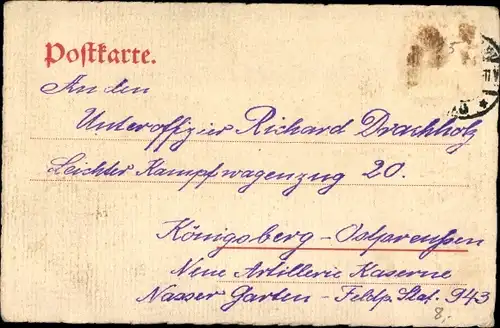 Postkarte.
An den
Unteroffizier Richard Drachholz
Leichter Kampfwagenzug 20.
Königsberg-Ostpreußen
Neue Artillerie Kaserne
Nasser Garten - Feldp. Stat. 943
8,-